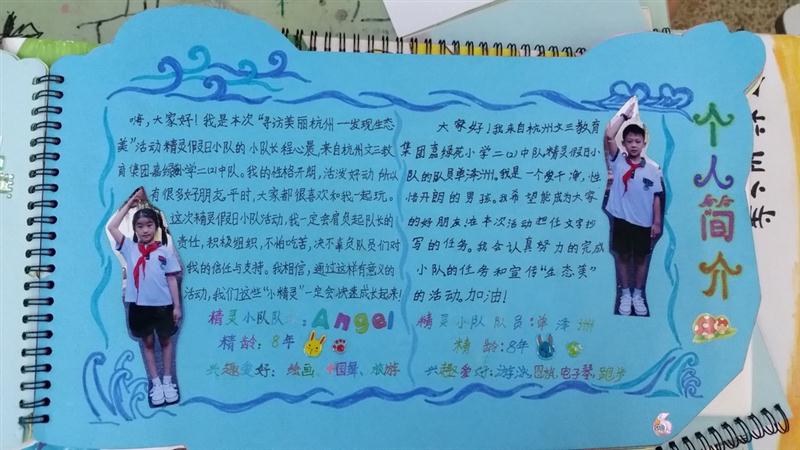 嗨,大家好!我是本次“寻访美丽杭州—发现生态
美”活动精灵假日小队的小队长程心晨,来自杭州文三教
育集团嘉绿苑小学二(4)中队。我的性格开朗,活泼好动所以
有很多好朋友。平时,大家都很喜欢和我一起玩。
这次精灵假日小队活动,我一定会肩负起队长的
责任,积极组织,不怕吃苦,决不辜负队员们对
我的信任与支持。我相信,通过这样有意义的
活动,我们这些“小精灵”一定会快速成长起来!
精灵小队队长:Angel
精龄:8年
兴趣爱好:绘画、中国舞、旅游
大家好!我来自杭州文三教育
集团嘉绿苑小学二(4)中队精灵假日小
队的队员单泽洲。我是一个爱干净,性
格开朗的男孩。我希望能成为大家
的好朋友。在本次活动担任文字抄
写的任务。我会认真努力的完成
小队的任务和宣传“生态美”
的活动。加油!
精灵小队队员:单泽洲
精龄:8年
兴趣爱好:游泳、围棋、电子琴、跑步
个人简介